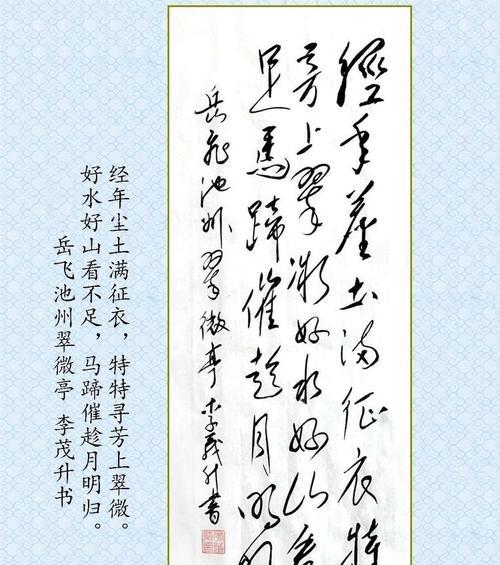 經年塵土满征衣特
芳上翠微好水好山看
足馬蹄催趁月明归
岳飛池州翠微亭 李茂升書
经年尘土满征衣，特特寻芳上翠微。
好水好山看不足，马蹄催趁月明归。
岳飞池州翠微亭 李茂升书